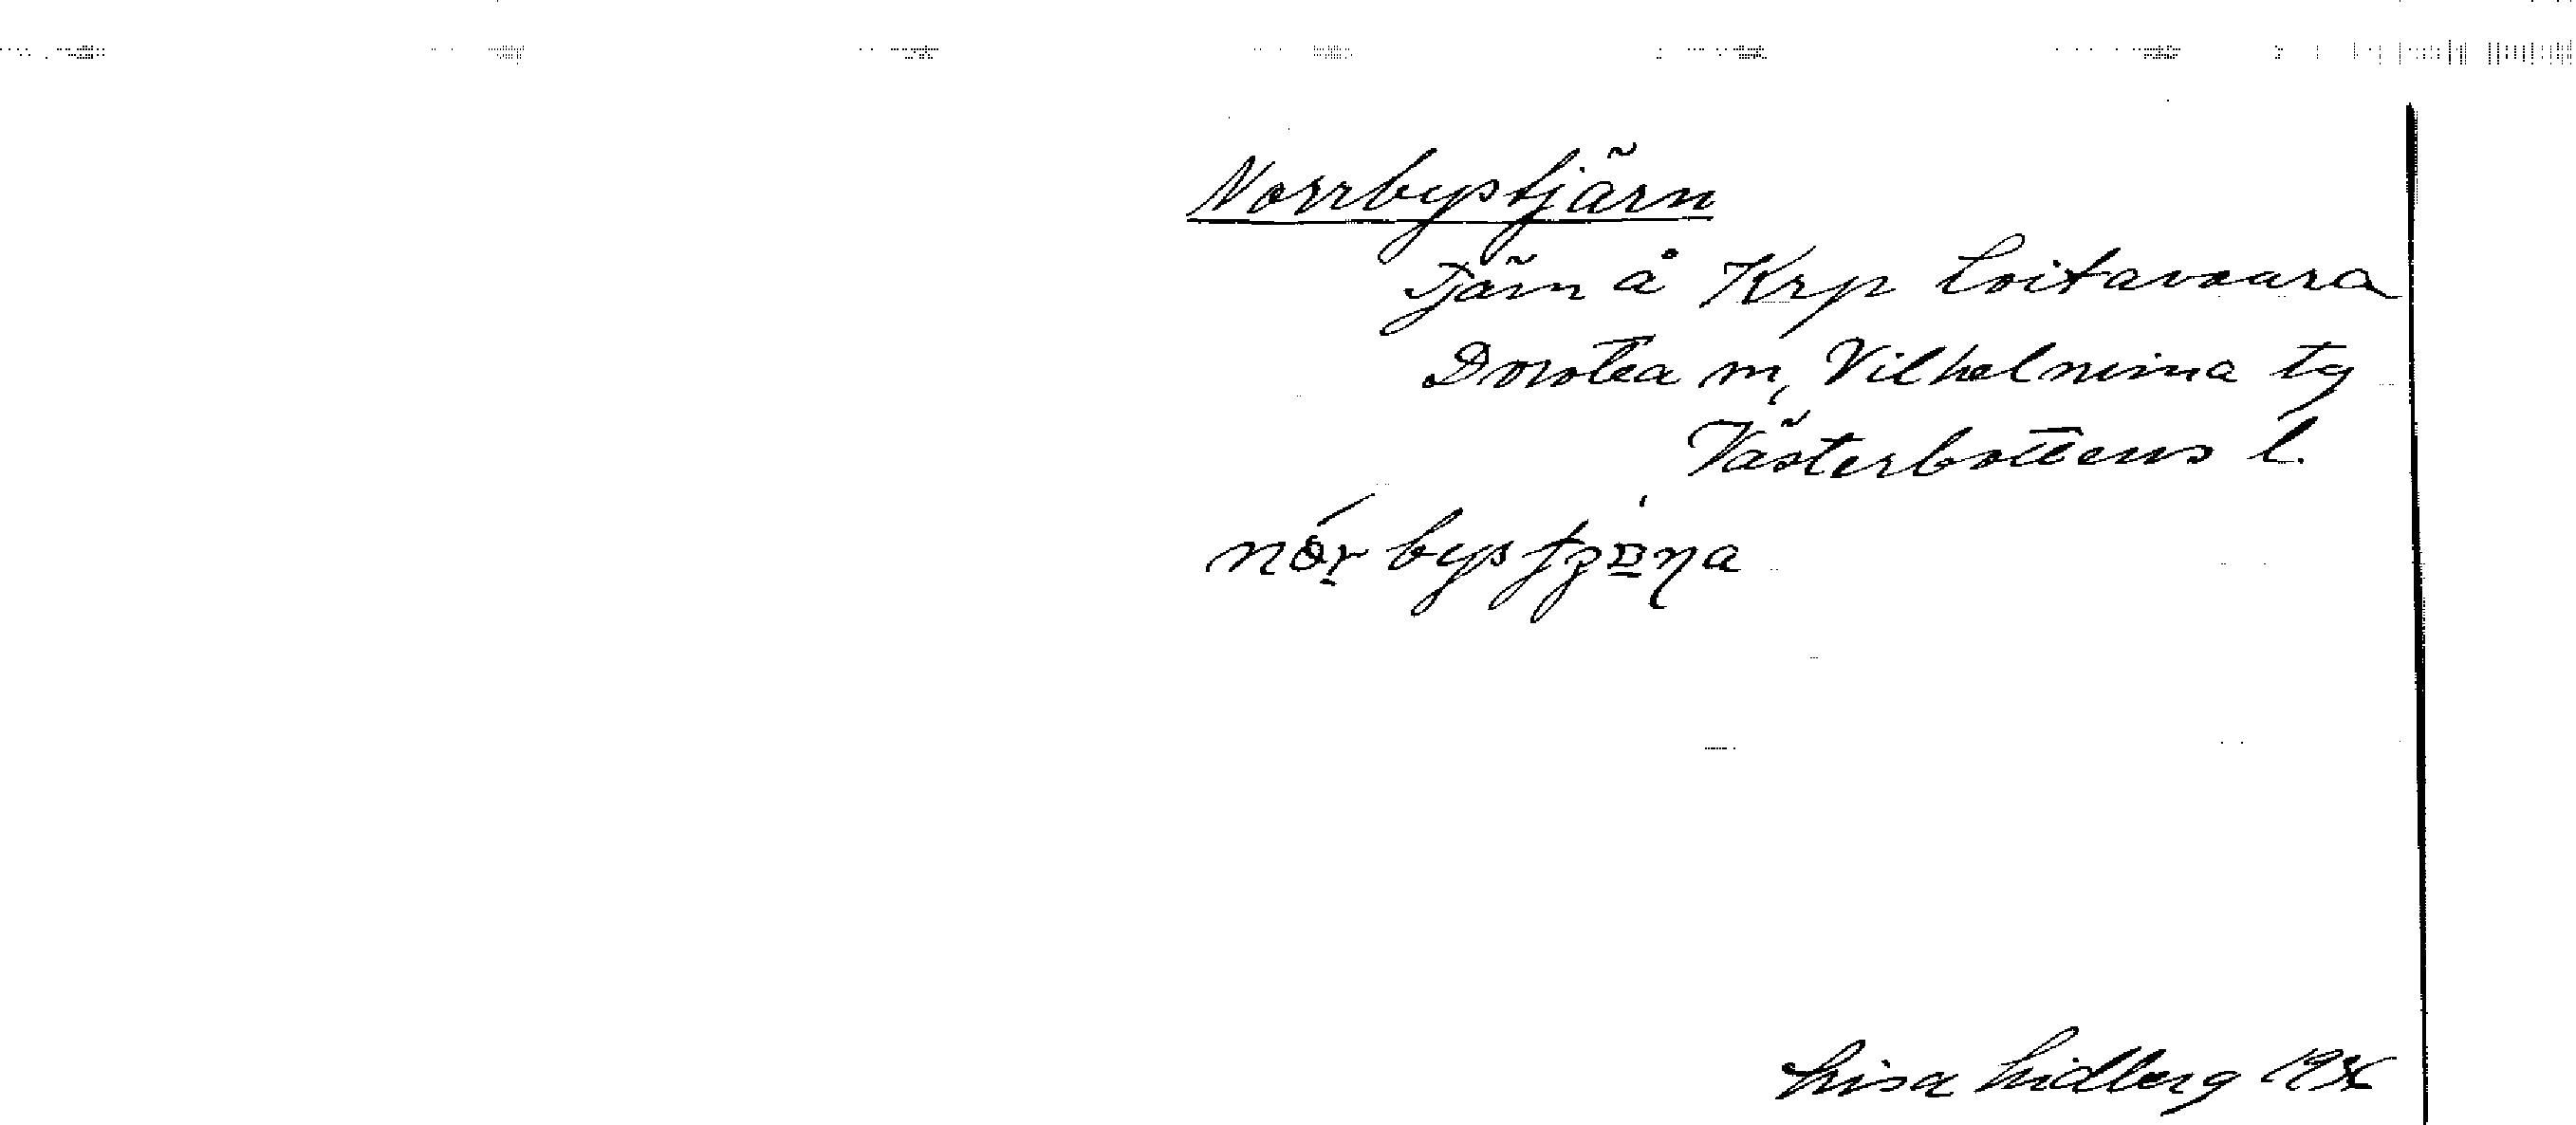 Norrbystjärn
Tjärn å Krp Loitavaara
Dorotea m, Vilhelmina tg
Västerbottens l.
Lisa Lidberg 1936